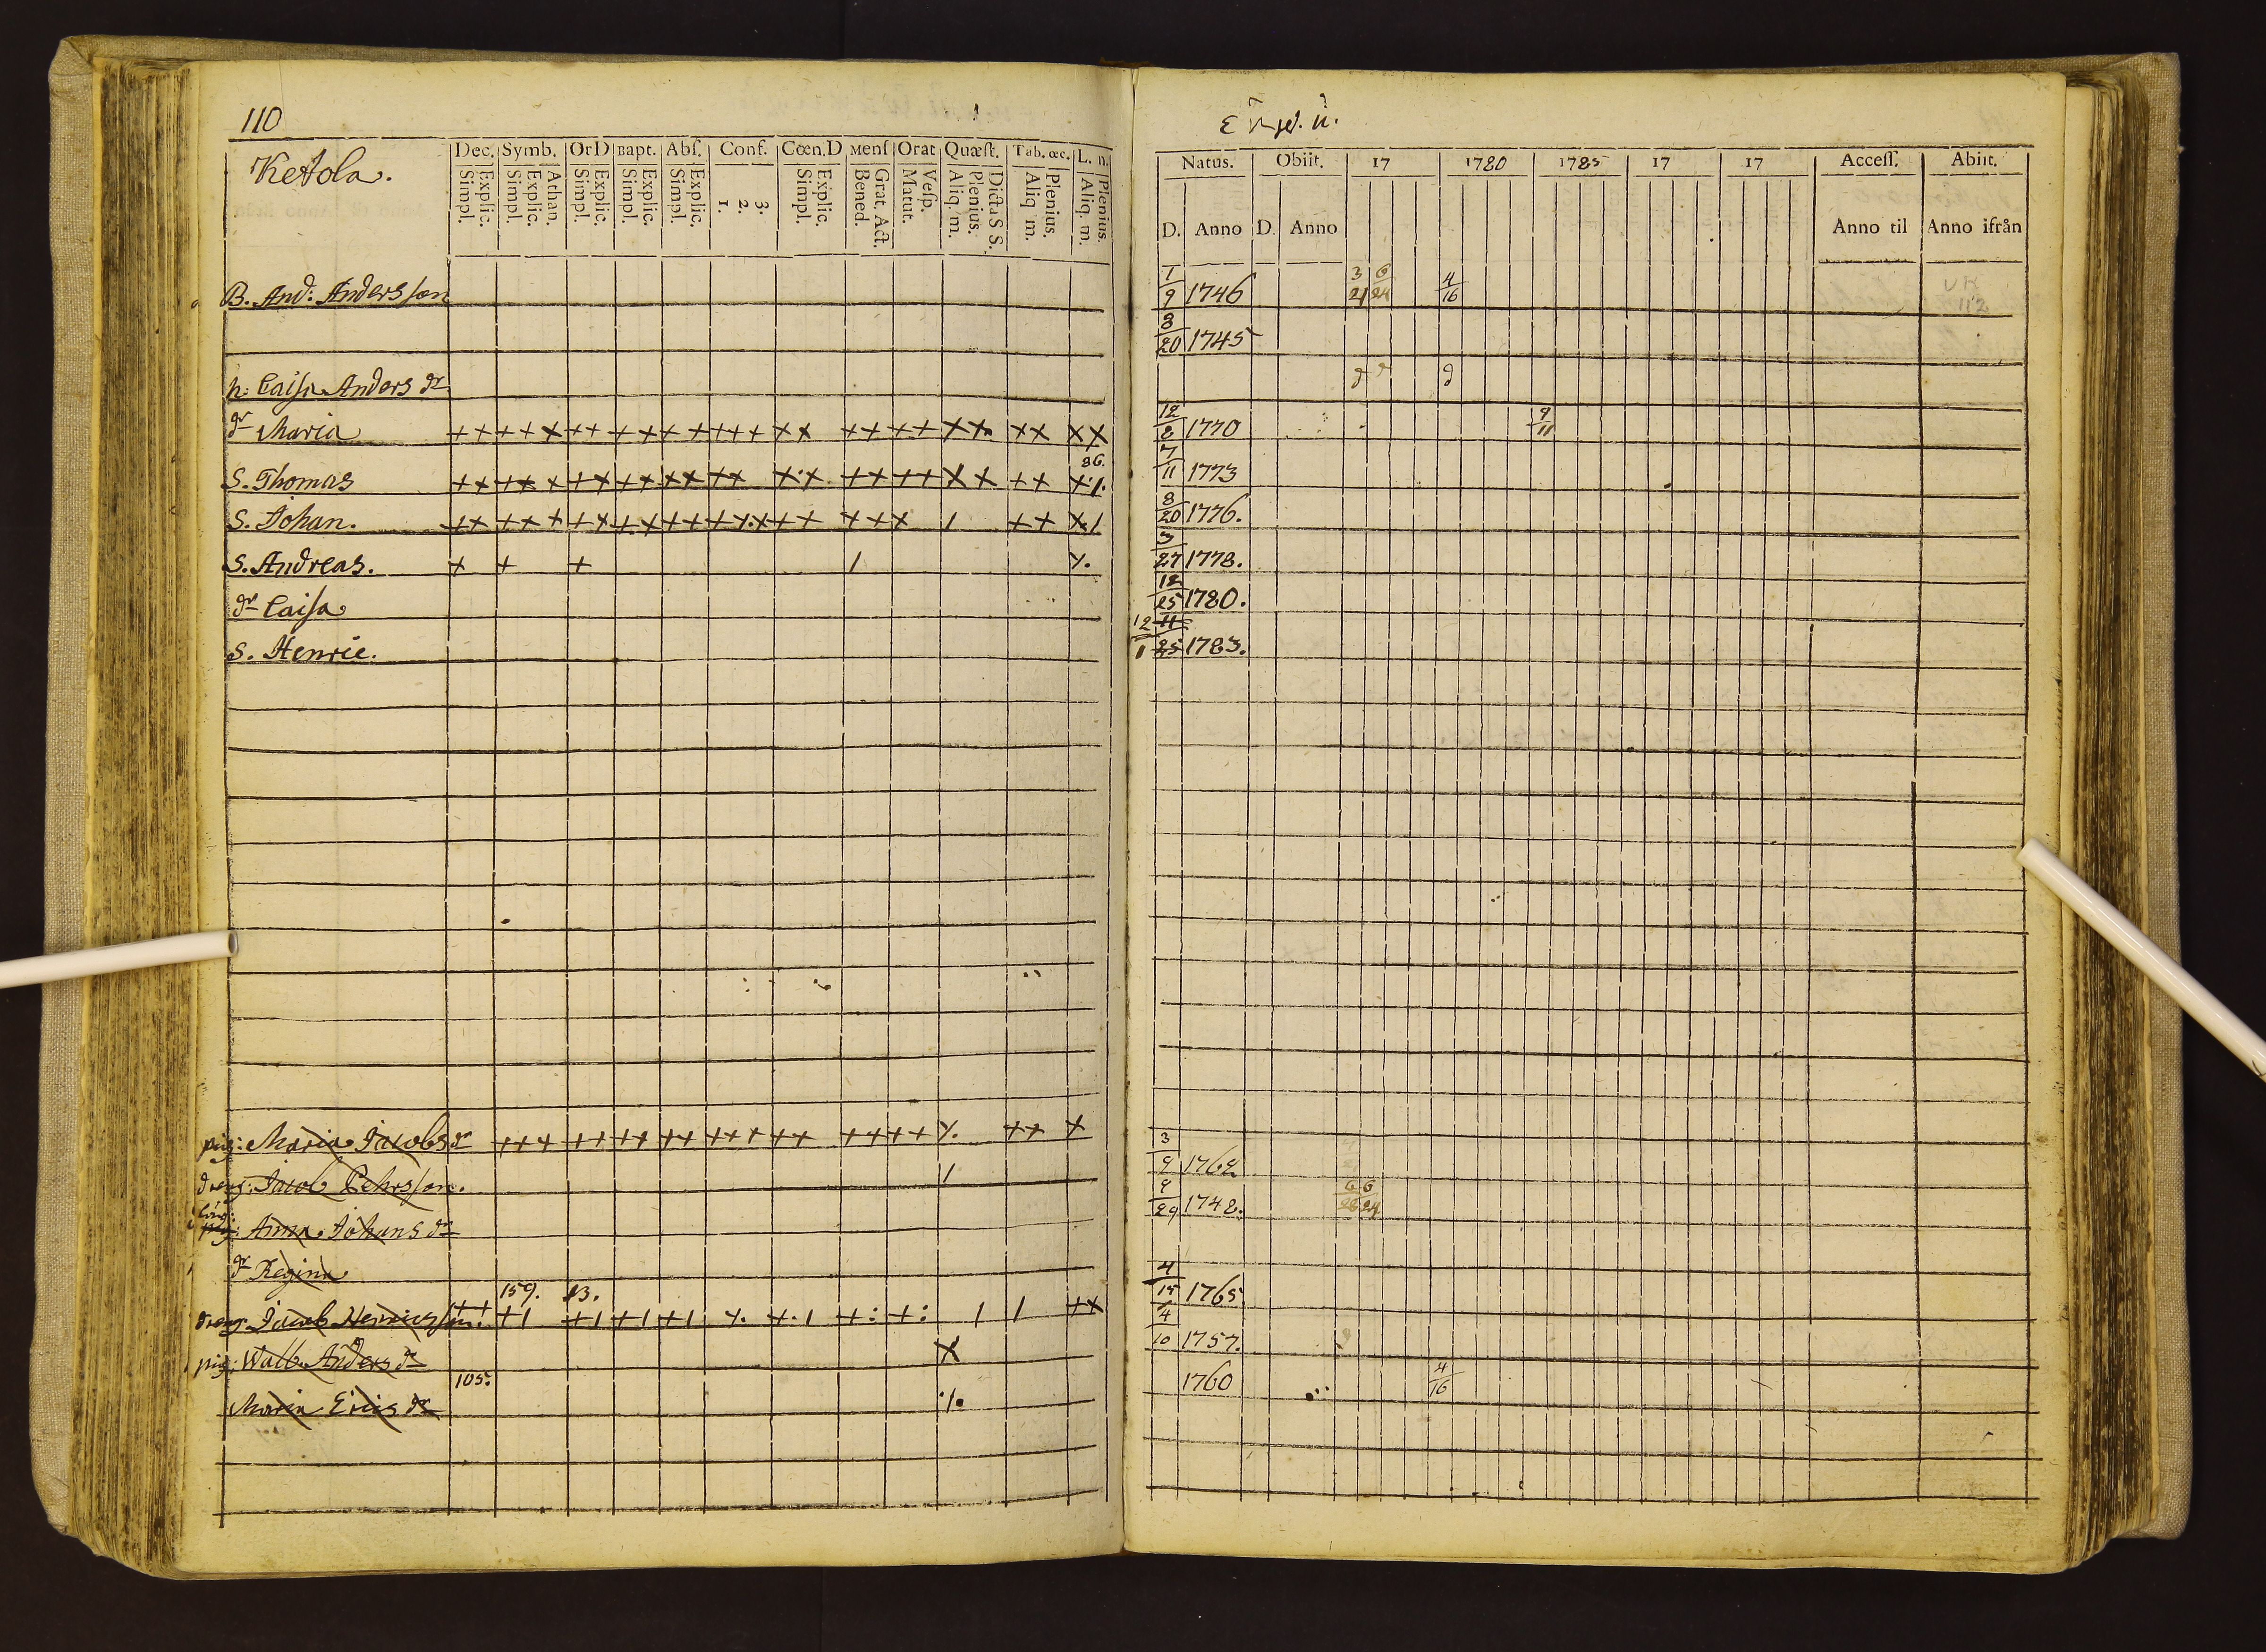 110
Ketola.
Dec. Symb. OrD Bapt. Abſ. Conf. Cœn.D Menſ Orat Quæſt. Tab. œc. L. n.
Explic. Simpl. Athan. Explic. Simpl. Explic. Simpl. Explic. Simpl. Explic. Simpl. 3. 2. 1. Explic. Simpl. Grat. Act. Bened. Veſp. Matut. Dicta S S. Plenius. Aliq. m. Plenius. Aliq m. Plenius. Aliq. m.
B. And: Andersson
h: Caisa Anders dr
dr Maria ++ +++ ++ ++ ++ +++ ++ ++ ++ ++ ++ ++
86.
S. Thomas ++ +++ ++ ++ ++ ++ ++ ++ ++ ++ ++
S. Johan. ++ +++ ++ ++ ++ ++ +++ / ++
S. Andreas. + + + /
dr Caisa
S. Henric.
pig: Maria Jacobs dr +++ ++ ++ ++ +++ ++ ++ ++ ++ +
dreng: Jacob Pehrsson. /
Anna Johans dr
dr Regina
159. 13.
dreng: Jacob Henricsson: ++ +/ +/ +/ +/ / / ++
pig: Walb. Anders dr +
105.
Maria Erics dr
Natus. Obiit. 17 1780 1785 17 17 Acceſſ. Abiit.
D. Anno D. Anno Anno til Anno ifrån
1/9 1746 3/21 6/24 4/16 112
8/20 1745
12/8 1770 9/11
7/11 1773
8/20 1776.
3/27 1778.
12/25 1780.
12/1 11/25 1783.
3/9 1762
9/29 1748. 6/26 6/24
4/15 1765
4/10 1757.
1760 4/16